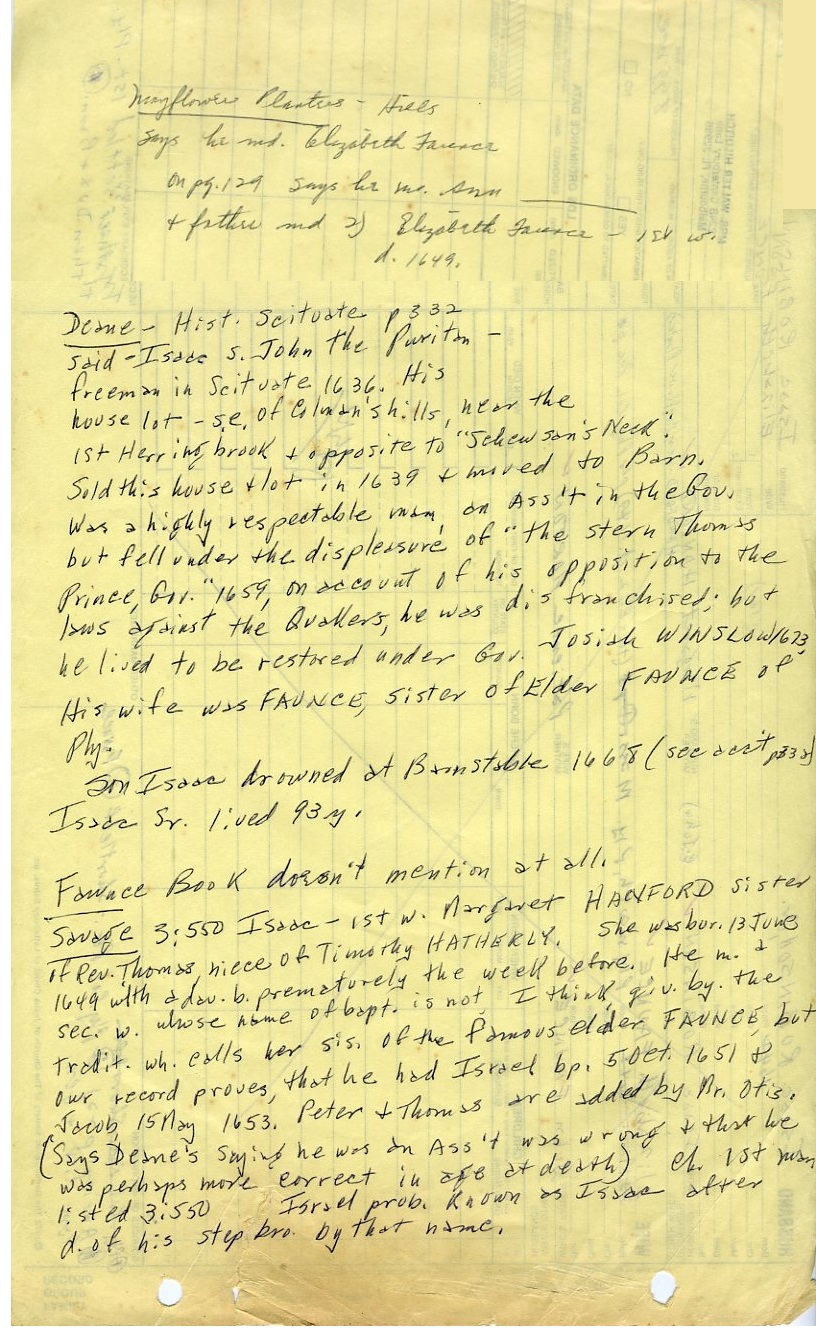 Mayflower Planters - Hills
says he md. Elizabeth Faunce
on pg. 129 says he m. Ann ______
+ father md 2) Elizabeth Faunce - 1st w.
d. 1649.
Deane - Hist. Scituate p 332
said - Isaac s. John the Puritan -
freeman in Scituate 1636. His
house lot - s.e. of Colman's hills, near the
1st Herring brook & opposite to "Schewson's Neck".
Sold this house & lot in 1639 & moved to Barn.
Was a highly respectable man, an Ass't in the Gov.
but fell under the displeasure of "the stern Thomas
Prince, Gov." 1659, on account of his opposition to the
laws against the Quakers, he was disfranchised; but
he lived to be restored under Gov. Josiah WINSLOW 1673,
His wife was FAUNCE, sister of Elder FAUNCE of
Ply.
Son Isaac drowned at Barnstable 1668 (see acc't p332)
Isaac Sr. lived 93 y.
Faunce Book doesn't mention at all.
Savage 3:550 Isaac - 1st w. Margaret HANFORD sister
of Rev. Thomas, niece of Timothy HATHERLY. She was bur. 13 June
1649 with a dau. b. prematurely the week before. He m. a
sec. w. whose name of bapt. is not, I think, giv. by the
tradit. wh. calls her sis. of the famous elder FAUNCE, but
our record proves, that he had Israel bp. 5 Oct. 1651 &
Jacob, 15 May 1653. Peter & Thomas are added by Mr. Otis.
(Says Deane's saying he was an Ass't was wrong & that he
was perhaps more correct in age at death) Ch. 1st man
listed 3:550 Israel prob. known as Isaac after
d. of his step bro. by that name.